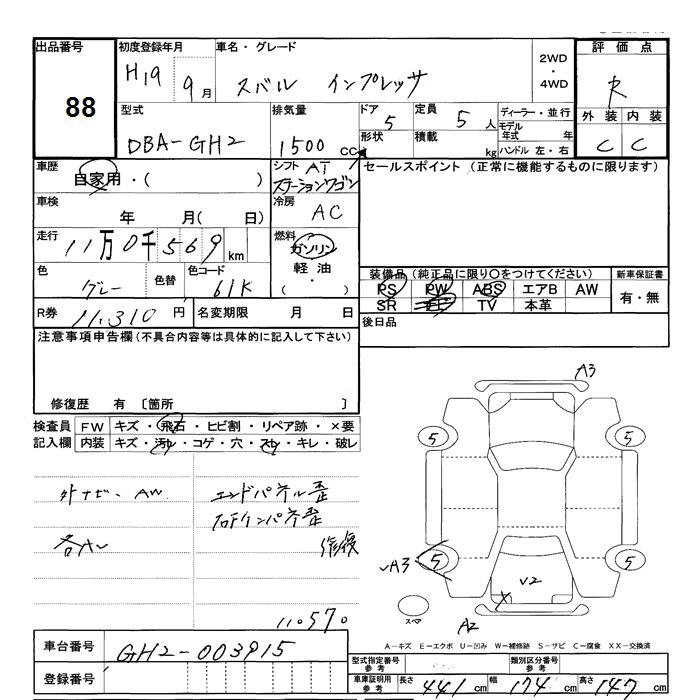 出品番号
88
初度登録年月
H19 9月
車名・グレード
スバル インプレッサ
2WD
・
4WD
評価点
R
外装 内装
C C
型式
DBA-GH2
排気量
1500 CC
ドア
5
形状
定員
5人
積載
kg
ディーラー・並行
モデル
年式 年
ハンドル 左・右
車歴
自家用・( )
シフト AT
ステーションワゴン
セールスポイント (正常に機能するものに限ります)
車検
年 月( 日)
冷房
AC
走行
11万0千569km
燃料
ガソリン
軽油
( ・ )
色
グレー
色替
色コード
61K
装備品(純正品に限り〇をつけてください)
PS PW ABS エアB AW
SR TV 本革
新車保証書
有・無
R券 11,310 円
名変期限 月 日
後日品
注意事項申告欄(不具合内容等は具体的に記入して下さい)
修復歴 有 〔箇所 〕
検査員 FW キズ・飛石・ヒビ割・リペア跡・×要
記入欄 内装 キズ・汚レ・コゲ・穴・スレ・キレ・破レ
外ナビ、AW
エンドパネル歪
右Rインパネ歪
修復
110570
A3
5 5
5 5
A3
V2
X
A2
スペア
A－キズ E－エクボ U－凹み W－補修跡 S－サビ C－腐食 XX－交換済
車台番号 GH2-003915
登録番号
型式指定番号
参考
類別区分番号
参考
車庫証明用
参考
長さ 441 cm 幅 174 cm 高さ 147 cm